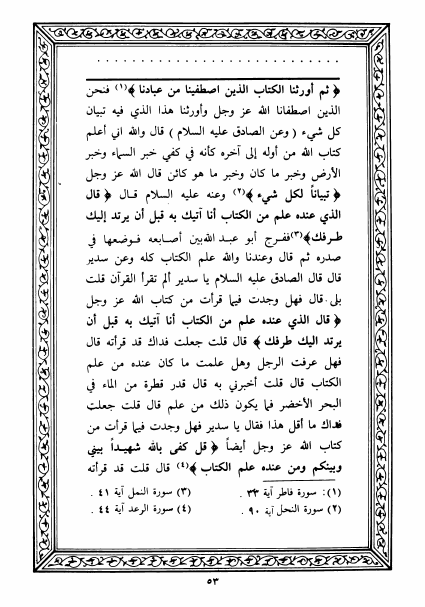 ﴿ ثم أورثنا الكتاب الذين اصطفينا من عبادنا ﴾(١) فنحن
الذين اصطفانا الله عز وجل وأورثنا هذا الذي فيه تبيان
كل شيء ( وعن الصادق عليه السلام ) قال والله اني أعلم
كتاب الله من أوله إلى آخره كأنه في كفي خبر السماء وخبر
الأرض وخبر ما كان وخبر ما هو كائن قال الله عز وجل
﴿ تبياناً لكل شيء ﴾(٢) وعنه عليه السلام قـال ﴿ قال
الذي عنده علم من الكتاب أنا آتيك به قبل أن يرتد إليك
طـرفك﴾(٣)ففـرج أبو عبـد اللهبين أصـابعه فـوضعهـا في
صدره ثم قال وعندنا والله علم الكتاب كله وعن سدير
قال قال الصادق عليه السلام يا سدير ألم تقرأ القرآن قلت
بلى قال فهل وجدت فيما قرأت من كتاب الله عز وجل
﴿ قال الذي عنده علم من الكتاب أنا آتيك به قبل أن
يرتد اليك طرفك ﴾ قال قلت جعلت فداك قد قرأته قال
فهل عرفت الرجل وهل علمت ما كان عنده من علم
الكتاب قال قلت أخبرني به قال قدر قطرة من الماء في
البحر الأخضر فما يكون ذلك من علم قال قلت جعلت
فداك ما أقل هذا فقال يا سدير فهل وجدت فيما قرأت من
كتاب الله عز وجل أيضاً ﴿ قل كفى بالله شهيـداً بيني
وبينكم ومن عنده علم الكتاب ﴾(٤) قال قلت قد قرأته
(١): سورة فاطر آية ٣٣ . (٣) سورة النمل آية ٤١ .
(٢) سورة النحل آية ٩٠ . (٤) سورة الرعد آية ٤٤ .
٥٣